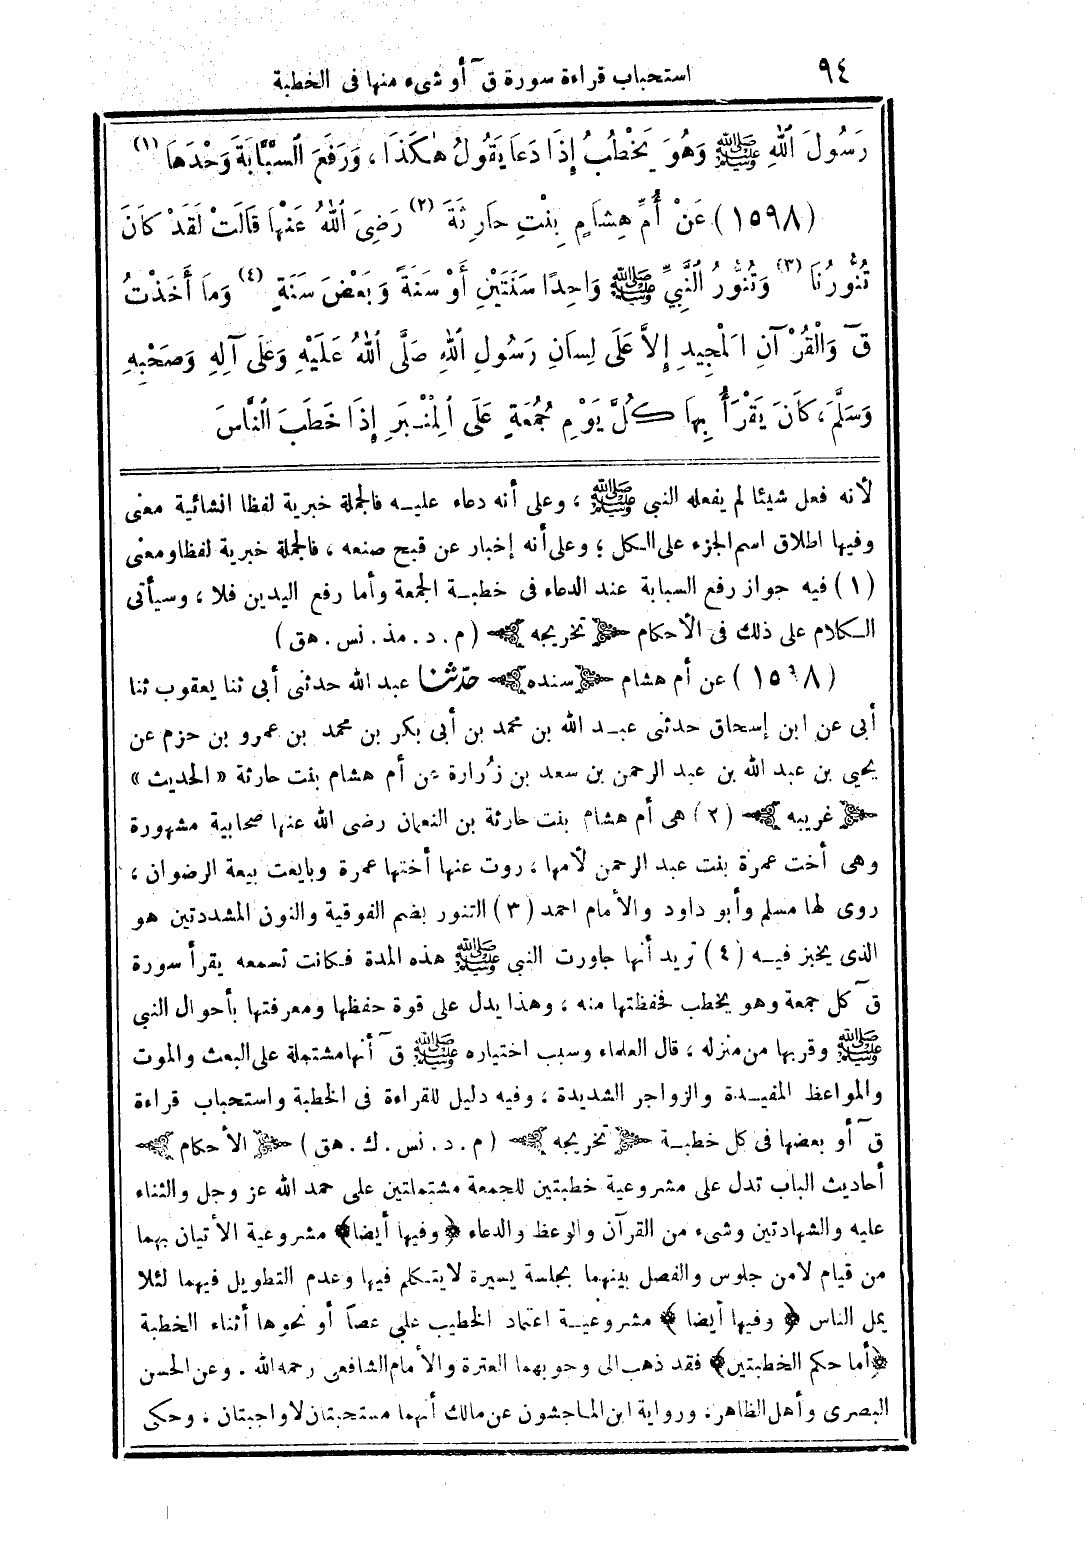 ٩٤ استحباب قراءة سورة قٓ أو شىء منها فى الخطبة
رَسُولَ ٱللهِ ﷺ وَهُوَ يَخْطُبُ إِذَا دَعَا يَقُولُ هٰكَذَا ، وَرَفَعَ ٱلسَّبَّابَةَ وَحْدَهَا (١)
(١٥٩٨) عَنْ أُمِّ هِشَامٍ بِنْتِ حَارِثَةَ (٢) رَضِىَ ٱللهُ عَنْهَا قَالَتْ لَقَدْ كَانَ
تُنُّورُنَا (٣) وَتُنُّورُ ٱلنَّبِيِّ ﷺ وَاحِدًا سَنَتَيْنِ أَوْ سَنَةً وَبَعْضَ سَنَةٍ (٤) وَمَا أَخَذْتُ
قٓ وَالْقُرْآنِ الْمَجِيدِ إِلاَّ عَلَى لِسَانِ رَسُولِ اللهِ صَلَّى ٱللهُ عَلَيْهِ وَعَلَى آلِهِ وَصَحْبِهِ
وَسَلَّمَ ، كَانَ يَقْرَأُ بِهَا كُلَّ يَوْمِ جُمُعَةٍ عَلَى ٱلْمِنْبَرِ إِذَا خَطَبَ ٱلنَّاسَ
لأنه فعل شيئا لم يفعله النبى ﷺ ، وعلى أنه دعاء عليه فالجملة خبرية لفظا انشائية معنى
وفيها اطلاق اسم الجزء على الكل ؛ وعلى أنه إخبار عن قبح صنعه ، فالجملة خبرية لفظا ومعنى
(١) فيه جواز رفع السبابة عند الدعاء فى خطبة الجمعة وأما رفع اليدين فلا ، وسيأتى
الكلام على ذلك فى الأحكام ﴿تخريجه﴾ (م . د . مذ . نس . هق)
(١٥٩٨) عن أم هشام ﴿سنده﴾ حدّثنا عبد الله حدثنى أبى ثنا يعقوب ثنا
أبى عن ابن إسحاق حدثنى عبد الله بن محمد بن أبى بكر بن محمد بن عمرو بن حزم عن
يحيى بن عبد الله بن عبد الرحمن بن سعد بن زُرارة عن أم هشام بنت حارثة «الحديث»
﴿غريبه﴾ (٢) هى أم هشام بنت حارثة بن النعمان رضى الله عنها صحابية مشهورة
وهى أخت عمرة بنت عبد الرحمن لأمها ، روت عنها أختها عمرة وبايعت بيعة الرضوان ،
روى لها مسلم وأبو داود والأمام احمد (٣) التنور بضم الفوقية والنون المشددتين هو
الذى يخبز فيه (٤) تريد أنها جاورت النبى ﷺ هذه المدة فكانت تسمعه يقرأ سورة
قٓ كل جمعة وهو يخطب فحفظتها منه ، وهذا يدل على قوة حفظها ومعرفتها بأحوال النبى
ﷺ وقربها من منزله ، قال العلماء وسبب اختياره ﷺ قٓ أنها مشتملة على البعث والموت
والمواعظ المفيدة والزواجر الشديدة ، وفيه دليل للقراءة فى الخطبة واستحباب قراءة
قٓ أو بعضها فى كل خطبة ﴿تخريجه﴾ (م . د . نس . ك . هق) ﴿الأحكام﴾
أحاديث الباب تدل على مشروعية خطبتين للجمعة مشتملتين على حمد الله عز وجل والثناء
عليه والشهادتين وشىء من القرآن والوعظ والدعاء ﴿وفيها أيضا﴾ مشروعية الأتيان بهما
من قيام لامن جلوس والفصل بينهما بجلسة يسيرة لا يتكلم فيها وعدم التطويل فيهما لئلا
يمل الناس ﴿وفيها أيضا﴾ مشروعية اعتماد الخطيب على عصاً أو نحوها أثناء الخطبة
﴿أما حكم الخطبتين﴾ فقد ذهب الى وجوبهما العترة والأمام الشافعى رحمه الله . وعن الحسن
البصرى وأهل الظاهر ، ورواية ابن الماجشون عن مالك أنهما مستحبتان لا واجبتان ، وحكى